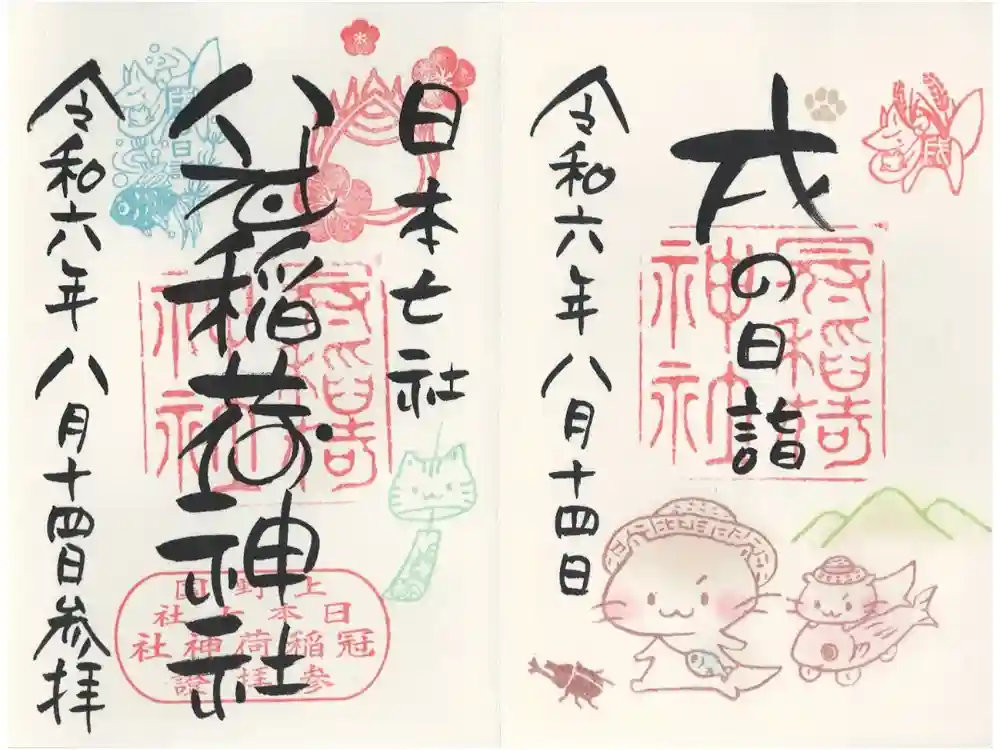 戌の日詣
令和六年八月十四日
戌
冠稲荷
神社
日本七社
冠稲荷神社
令和六年八月十四日参拝
冠稲荷
神社
上野国
日本七社
冠稲荷神社
参拝證